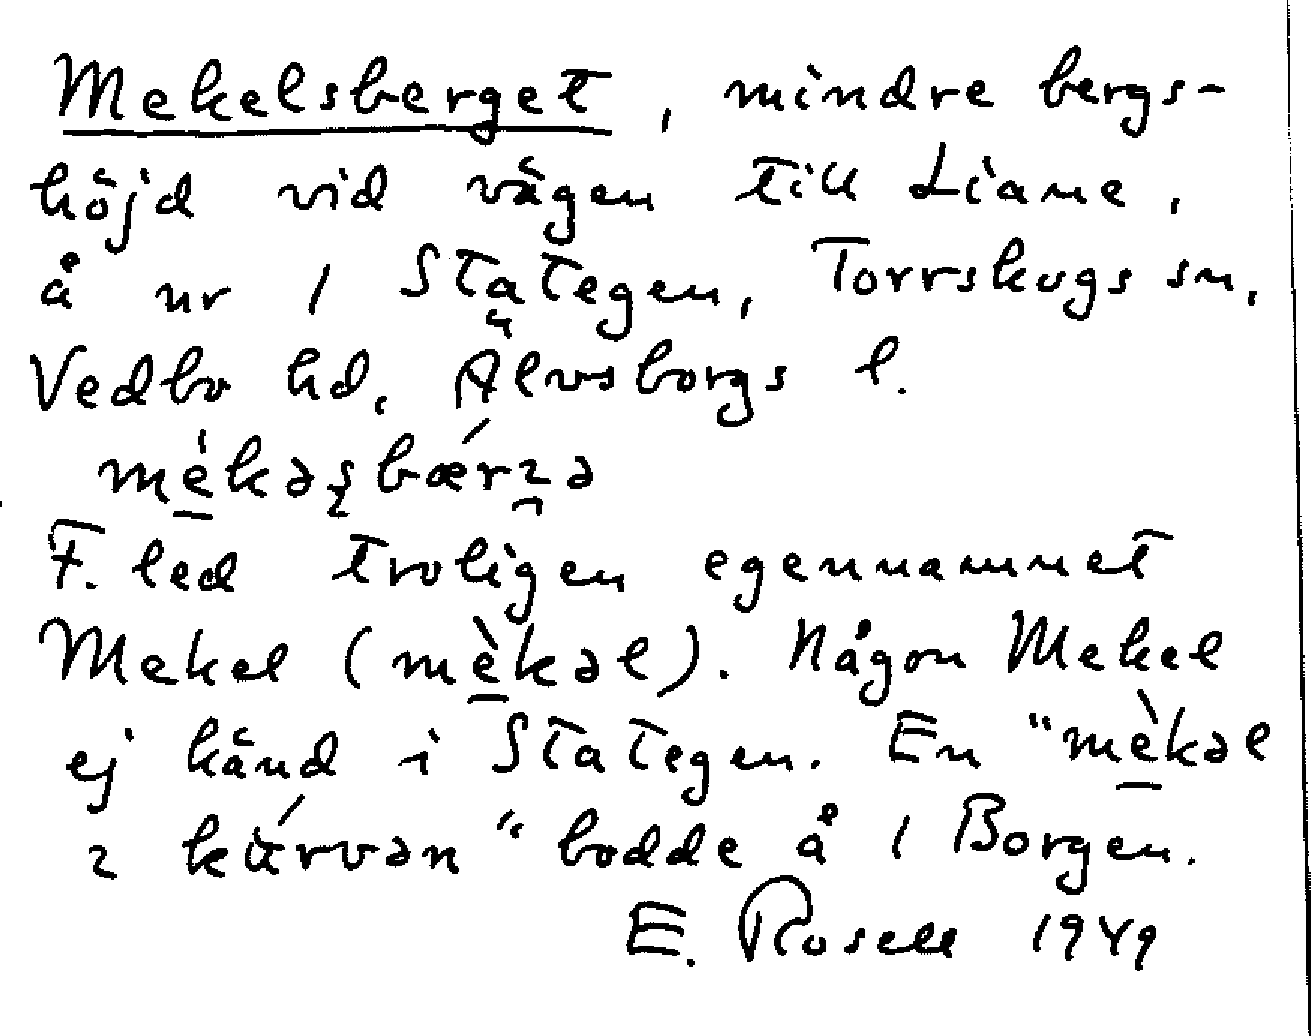 Mekelsberget, mindre bergs-
höjd vid vägen till Liane,
å nr 1 Stategen, Torrskogs sn,
Vedbo hd, Älvsborgs l.
mèkəʂbǽrɿ̯ə
F. led troligen egennamnet
Mekel (mèkəl). Någon Mekel
ej känd i Stategen. En "mèkəl
ɿ kúrvən" bodde å 1 Borgen.
E. Rosell 1949